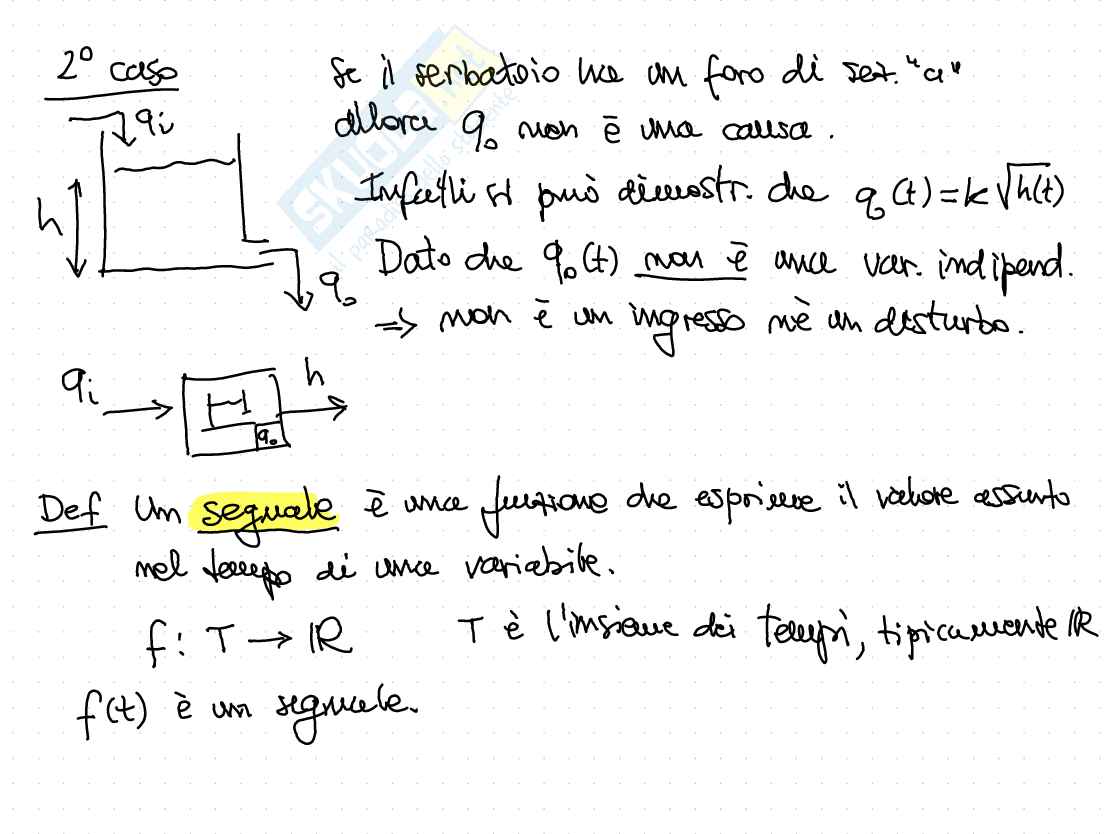 2° caso
Se il serbatoio ha un foro di sez. "a"
allora q₀ non è una causa.
Infatti si può dimostr. che q₀(t)=k√h(t)
Dato che q₀(t) non è una var. indipend.
⇒ non è un ingresso nè un disturbo.
qi
h
q₀
qi
h
q₀
Def Un segnale è una funzione che esprime il valore assunto
nel tempo di una variabile.
f: T → ℝ T è l'insieme dei tempi, tipicamente ℝ
f(t) è un segnale.
SKUOLA.net
il paradiso dello studente